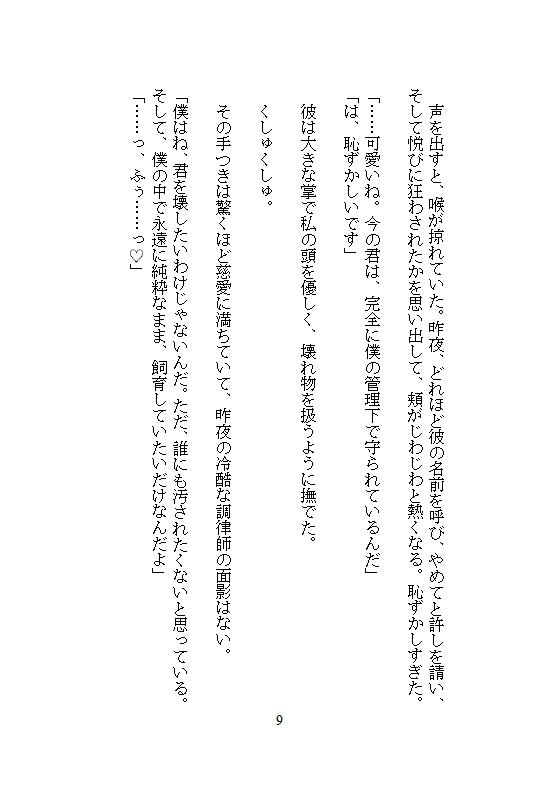 声を出すと、喉が掠れていた。昨夜、どれほど彼の名前を呼び、やめてと許しを請い、
そして悦びに狂わされたかを思い出して、頬がじわじわと熱くなる。恥ずかしすぎた。
「……可愛いね。今の君は、完全に僕の管理下で守られているんだ」
「は、恥ずかしいです」
彼は大きな掌で私の頭を優しく、壊れ物を扱うように撫でた。
くしゅくしゅ。
その手つきは驚くほど慈愛に満ちていて、昨夜の冷酷な調律師の面影はない。
「僕はね、君を壊したいわけじゃないんだ。ただ、誰にも汚されたくないと思っている。
そして、僕の中で永遠に純粋なまま、飼育していたいだけなんだよ」
「……っ、ふぅ……っ♡」
9